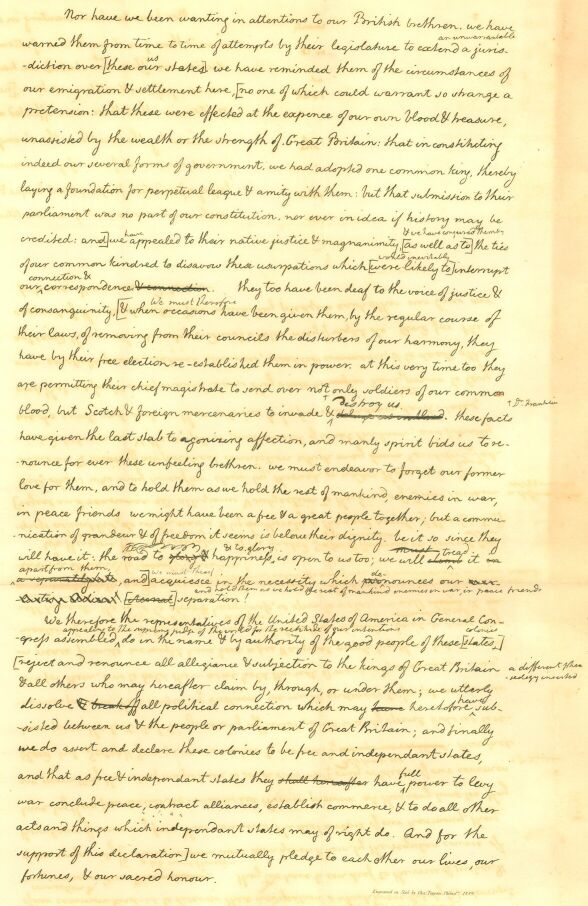 Nor have we been wanting in attentions to our British brethren. we have
an unwarrantable
warned them from time to time of attempts by their legislature to extend a juris-
us
-diction over [these our states]. we have reminded them of the circumstances of
our emigration & settlement here, [no one of which could warrant so strange a
pretension: that these were effected at the expence of our own blood & treasure,
unassisted by the wealth or the strength of Great Britain: that in constituting
indeed our several forms of government, we had adopted one common king, thereby
laying a foundation for perpetual league & amity with them: but that submission to their
parliament was no part of our constitution, nor ever in idea if history may be
have & we have conjured them by
credited: and] we appealed to their native justice & magnanimity [as well as to] the ties
would inevitably
of our common kindred to disavow these usurpations which [were likely to] interrupt
connection &
our correspondence & connection. they too have been deaf to the voice of justice &
We must therefore
of consanguinity, [& when occasions have been given them, by the regular course of
their laws, of removing from their councils the disturbers of our harmony, they
have by their free election re-established them in power. at this very time too they
are permitting their chief magistrate to send over not only soldiers of our common
destroy us † Dr. Franklin
blood, but Scotch & foreign mercenaries to invade & . these facts
have given the last stab to agonizing affection, and manly spirit bids us to re-
nounce for ever these unfeeling brethren. we must endeavor to forget our former
love for them, and to hold them as we hold the rest of mankind, enemies in war,
in peace friends we might have been a free & a great people together; but a commu-
-nication of grandeur & of freedom it seems is below their dignity. be it so since they
& to glory must tread
will have it: the road to happiness is open to us too; we will climb it
apart from them, we must then de-
and] acquiesce in the necessity which pronounces our
and hold them as we hold the rest of mankind enemies in war, in peace friends
[eternal] separation!
We therefore the representatives of the United States of America in General Con-
appealing to the supreme judge of the world for the rectitude of our intentions colonies
-gress assembled, do in the name & by authority of the good people of these [states,]
[reject and renounce all allegiance & subjection to the kings of Great Britain a different phra-
& all others who may hereafter claim by, through, or under them; we utterly -seology inserted
have
dissolve & break off all political connection which may have heretofore sub-
-sisted between us & the people or parliament of Great Britain; and finally
we do assert and declare these colonies to be free and independant states,
full
and that as free & independant states they shall hereafter have power to levy
war conclude peace, contract alliances, establish commerce, & to do all other
acts and things which independant states may of right do. And for the
support of this declaration] we mutually pledge to each other our lives, our
fortunes, & our sacred honour.